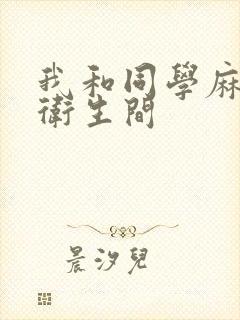 我和同學麻
衛生間
晨汐兒